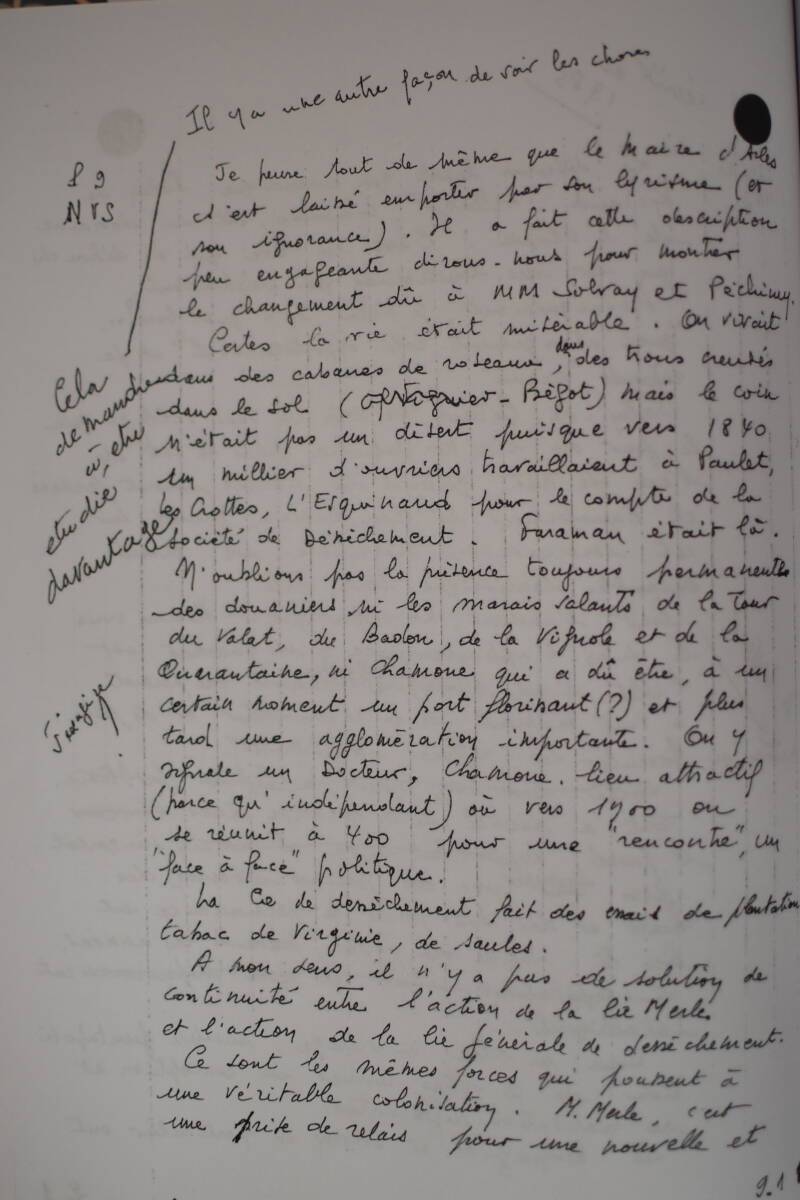 Il y a une autre façon de voir les choses
P 9
NVS
Je pense tout de même que le Maire d'Arles
s'est laissé emporter par son lyrisme (et
son ignorance). Il a fait cette description
peu engageante disons-nous pour montrer
le changement dû à MM Solvay et Péchiney.
Certes la vie était misérable. On vivait
dans des cabanes de roseaux, dans des trous creusés
dans le sol (      - Bégot) mais le coin
n'était pas un désert puisque vers 1840
un millier d'ouvriers travaillaient à Paulet,
les Crottes, L'Esquineau pour le compte de la
Société de Dessèchement. Faraman était là.
Cela
demande
à être
étudié
davantage
N'oublions pas la présence toujours permanente
des douaniers, ni les marais salants de la Tour
du Valat, du Badon, de la Vignole et de la
Quarantaine, ni Chamone qui a dû être, à un
certain moment un port florissant (?) et plus
tard une agglomération importante. On y
signale un Docteur, Chamone. lieu attractif
(parce qu'indépendant) où vers 1900 on
se réunit à 400 pour une "rencontre", un
"face à face" politique.
La Cie de dessèchement fait des essais de plantation
tabac de Virginie, de saules.
A mon sens, il n'y a pas de solution de
continuité entre l'action de la Cie Merle
et l'action de la Cie Générale de dessèchement.
Ce sont les mêmes forces qui poussent à
une véritable colonisation. M. Merle, c'est
une prise de relais pour une nouvelle et
9.1